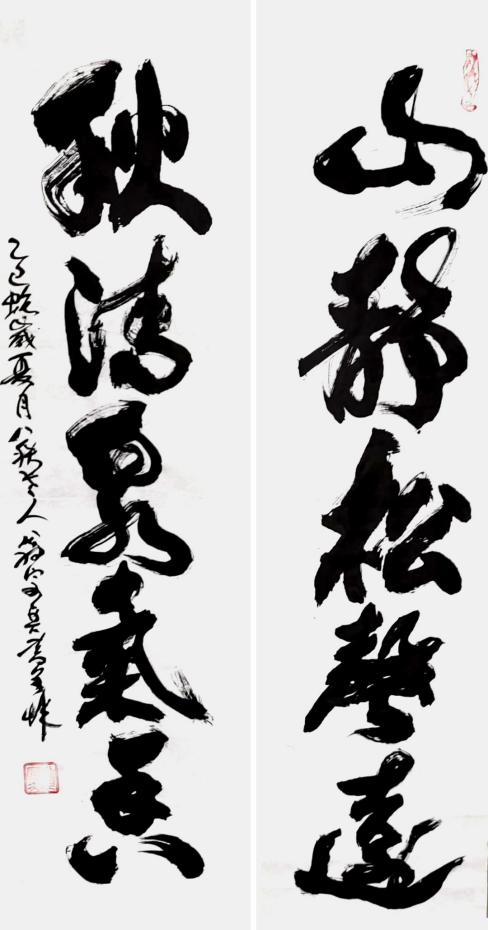 山静松聲遠
秋清泉氣香
乙巳蛇歲夏月八秩老人